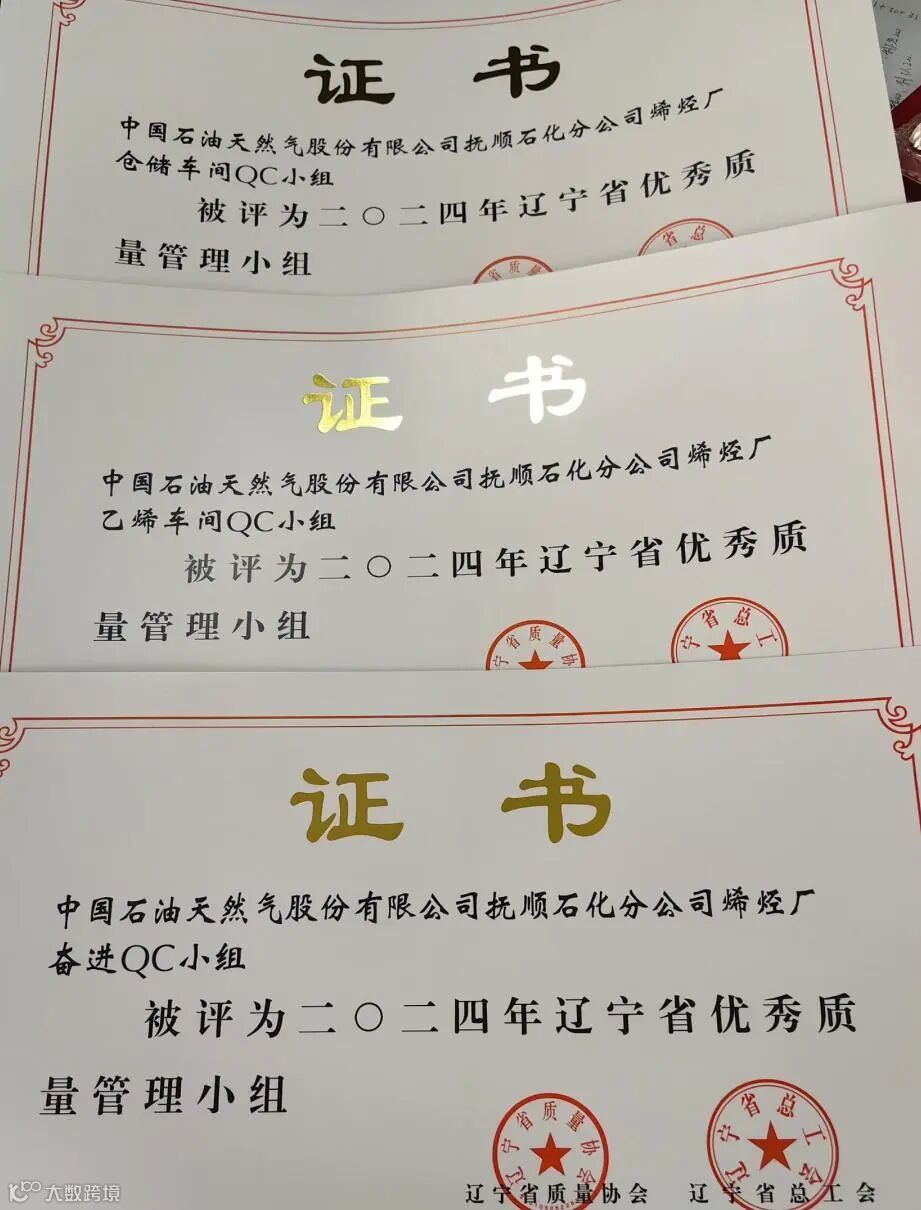 证 书
中国石油天然气股份有限公司抚顺石化分公司烯烃厂
仓储车间QC小组
被评为二〇二四年辽宁省优秀质
量管理小组
省质量
省总
证 书
中国石油天然气股份有限公司抚顺石化分公司烯烃厂
乙烯车间QC小组
被评为二〇二四年辽宁省优秀质
量管理小组
宁省质量协
宁省总工
证 书
中国石油天然气股份有限公司抚顺石化分公司烯烃厂
奋进QC小组
被评为二〇二四年辽宁省优秀质
量管理小组
辽宁省质量协会
辽宁省总工会
辽宁省质量协会 辽宁省总工会
大数跨境